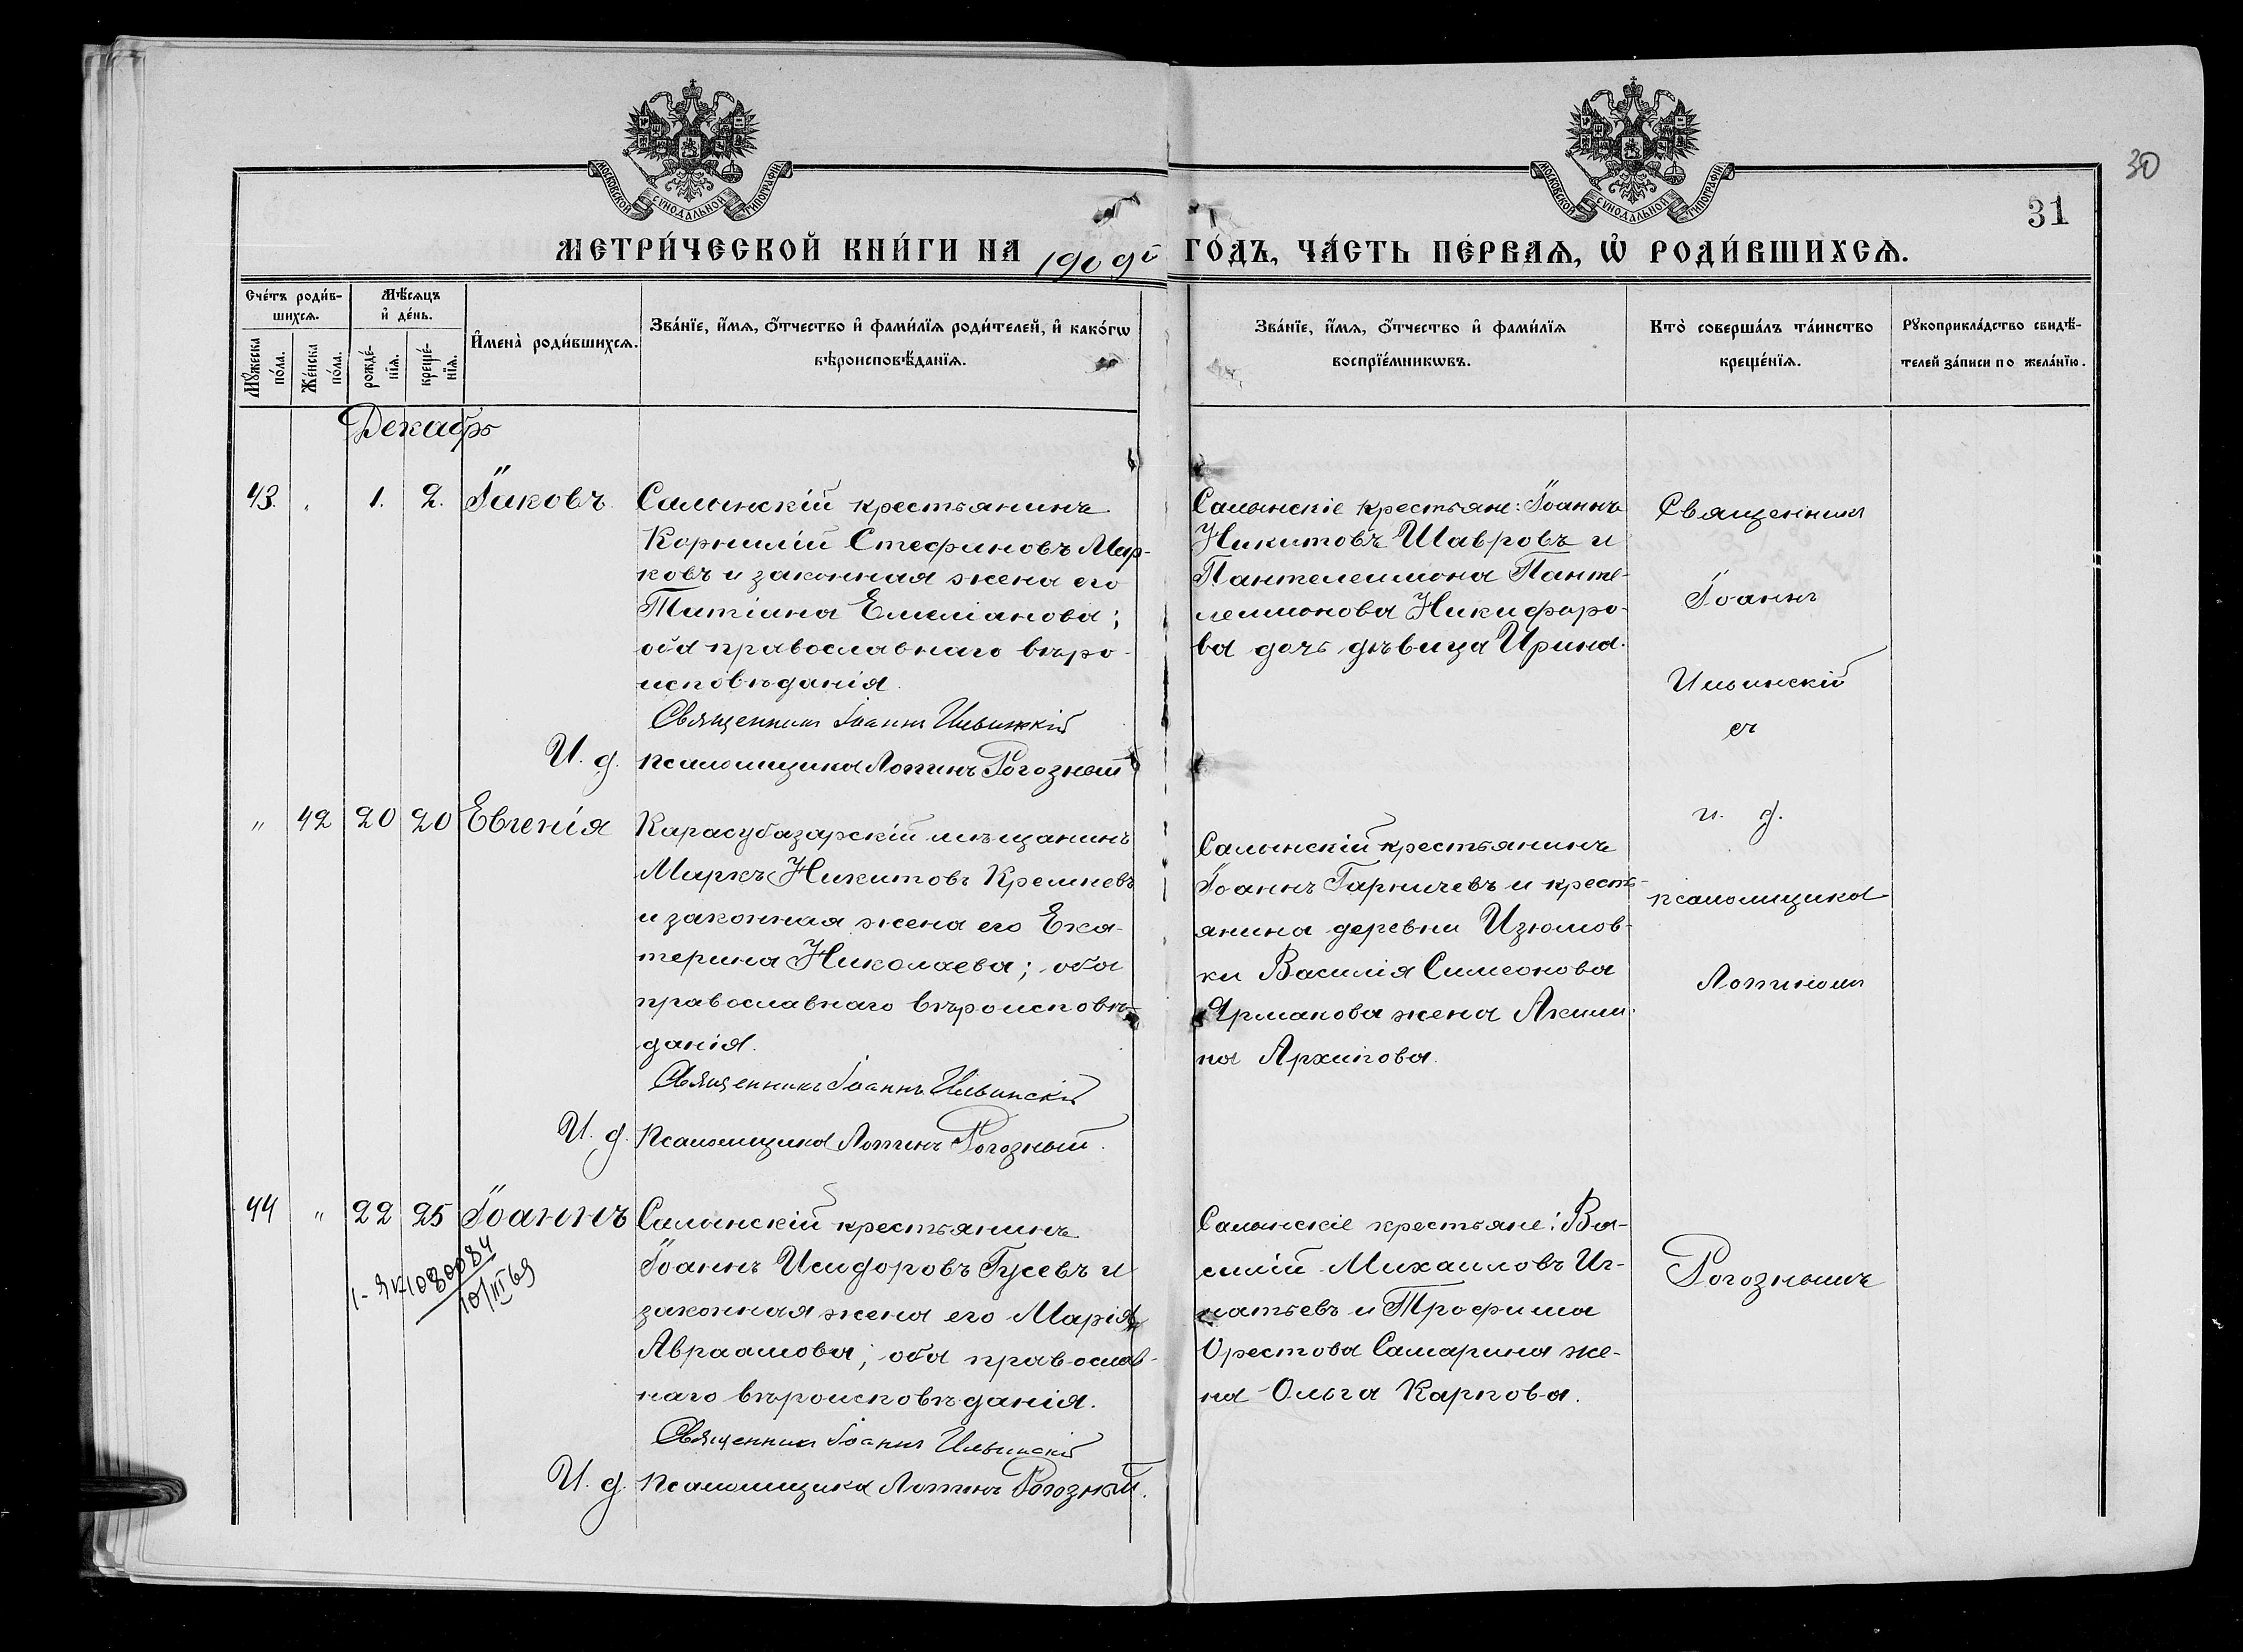 МОСКОВСКОЙ СѴНОДАЛЬНОЙ ТИПОГРАФІИ.
МОСКОВСКОЙ СѴНОДАЛЬНОЙ ТИПОГРАФІИ.
30
31
МЕТРИ́ЧЕСКОЙ КНИ́ГИ НА 1909й ГО́ДЪ, ЧА́СТЬ ПЕ́РВАѦ, Ѡ҆ РОДИ́ВШИХСѦ.
Сче́тъ роди́в-
шихсѧ.
Мꙋ́жеска по́ла.
Же́нска по́ла.
Мѣ́сѧцъ
и҆ де́нь.
рожде́-
нїѧ.
креще́-
нїѧ.
И҆мена̀ роди́вшихсѧ.
Зва́нїе, и҆́мѧ, ѻ҆́тчество и҆ фами́лїѧ роди́телей, и҆ како́гѡ
вѣроисповѣ́данїѧ.
Зва́нїе, и҆́мѧ, ѻ҆́тчество и҆ фами́лїѧ
воспрїе́мникѡвъ.
Кто̀ соверша́лъ та́инство
креще́нїѧ.
Рꙋкоприкла́дство свидѣ́-
телей за́писи по жела́нїю.
Декабрь
43. " 1. 2. Іаковъ
Салынскій крестьянинъ
Корнилій Стефановъ Мар-
ковъ и законная жена его
Татіана Емеліанова;
оба православнаго вѣро-
исповѣданія.
Священникъ Іоаннъ Ильинскій
И. д. псаломщика Логинъ Рогозный
Салынскіе крестьяне: Іоаннъ
Никитовъ Шавровъ и
Пантелеимона Панте-
леимонова Никифоро-
ва дочь дѣвица Ирина.
Священникъ
Іоаннъ
Ильинскій
съ
и. д.
псаломщика
Логиномъ
Рогознымъ
" 42 20 20 Евгенія
Карасубазарскій мѣщанинъ
Маркъ Никитовъ Кремневъ
и законная жена его Ека-
терина Николаева; оба
православнаго вѣроисповѣ-
данія.
Священникъ Іоаннъ Ильинскій
И. д. Псаломщика Логинъ Рогозный.
Салынскій крестьянинъ
Іоаннъ Гарничевъ и кресть-
янина деревни Изюмов-
ки Василія Симеонова
Ярмакова жена Акили-
на Архипова.
44 " 22 25 Іоаннъ
1-ЯК1080084
10/III 69
Салынскій крестьянинъ
Іоаннъ Исидоровъ Гусевъ и
законная жена его Марія
Авраамова; оба православ-
наго вѣроисповѣданія.
Священникъ Іоаннъ Ильинскій
И. д. Псаломщика Логинъ Рогозный.
Салынскіе крестьяне: Ва-
силій Михаиловъ Иг-
натьевъ и Трофима
Орестова Самарина же-
на Ольга Карпова.